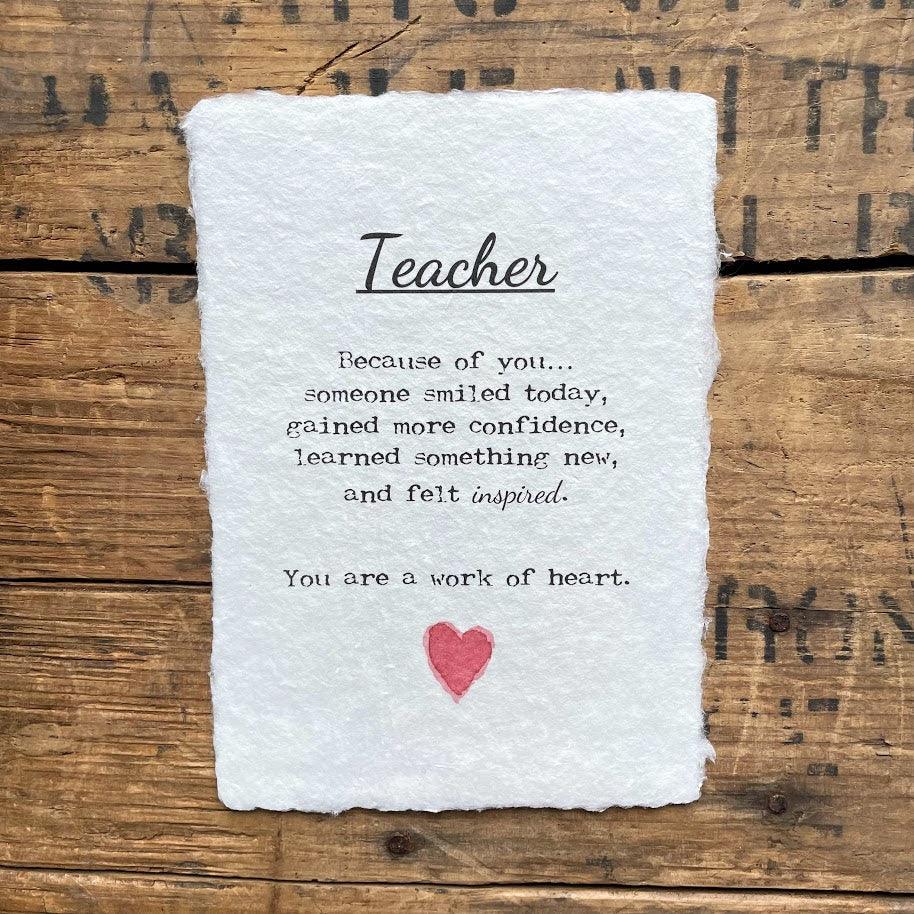 Teacher
Because of you...
someone smiled today,
gained more confidence,
learned something new,
and felt inspired.
You are a work of heart.